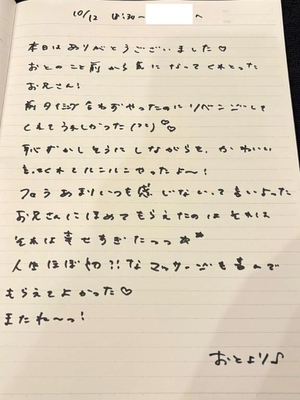 10/12 18:30〜 へ
本日はありがとうございました♡
おとのこと前から気になってくれとった
お兄さん!
前タイミング合わずやったのにリベンジして
くれてうれしかった
恥ずかしそうにしながらも、かわいい
言ってくれてルンルンやったよ〜!
フェラあまりいつも感じないって言いよった
お兄さんにほめてもらえたのはそれは
それは幸せすぎたっっ
人生ほぼ初?!なマッサージも喜んで
もらえてよかった♡
またね〜っ!
おとより♪